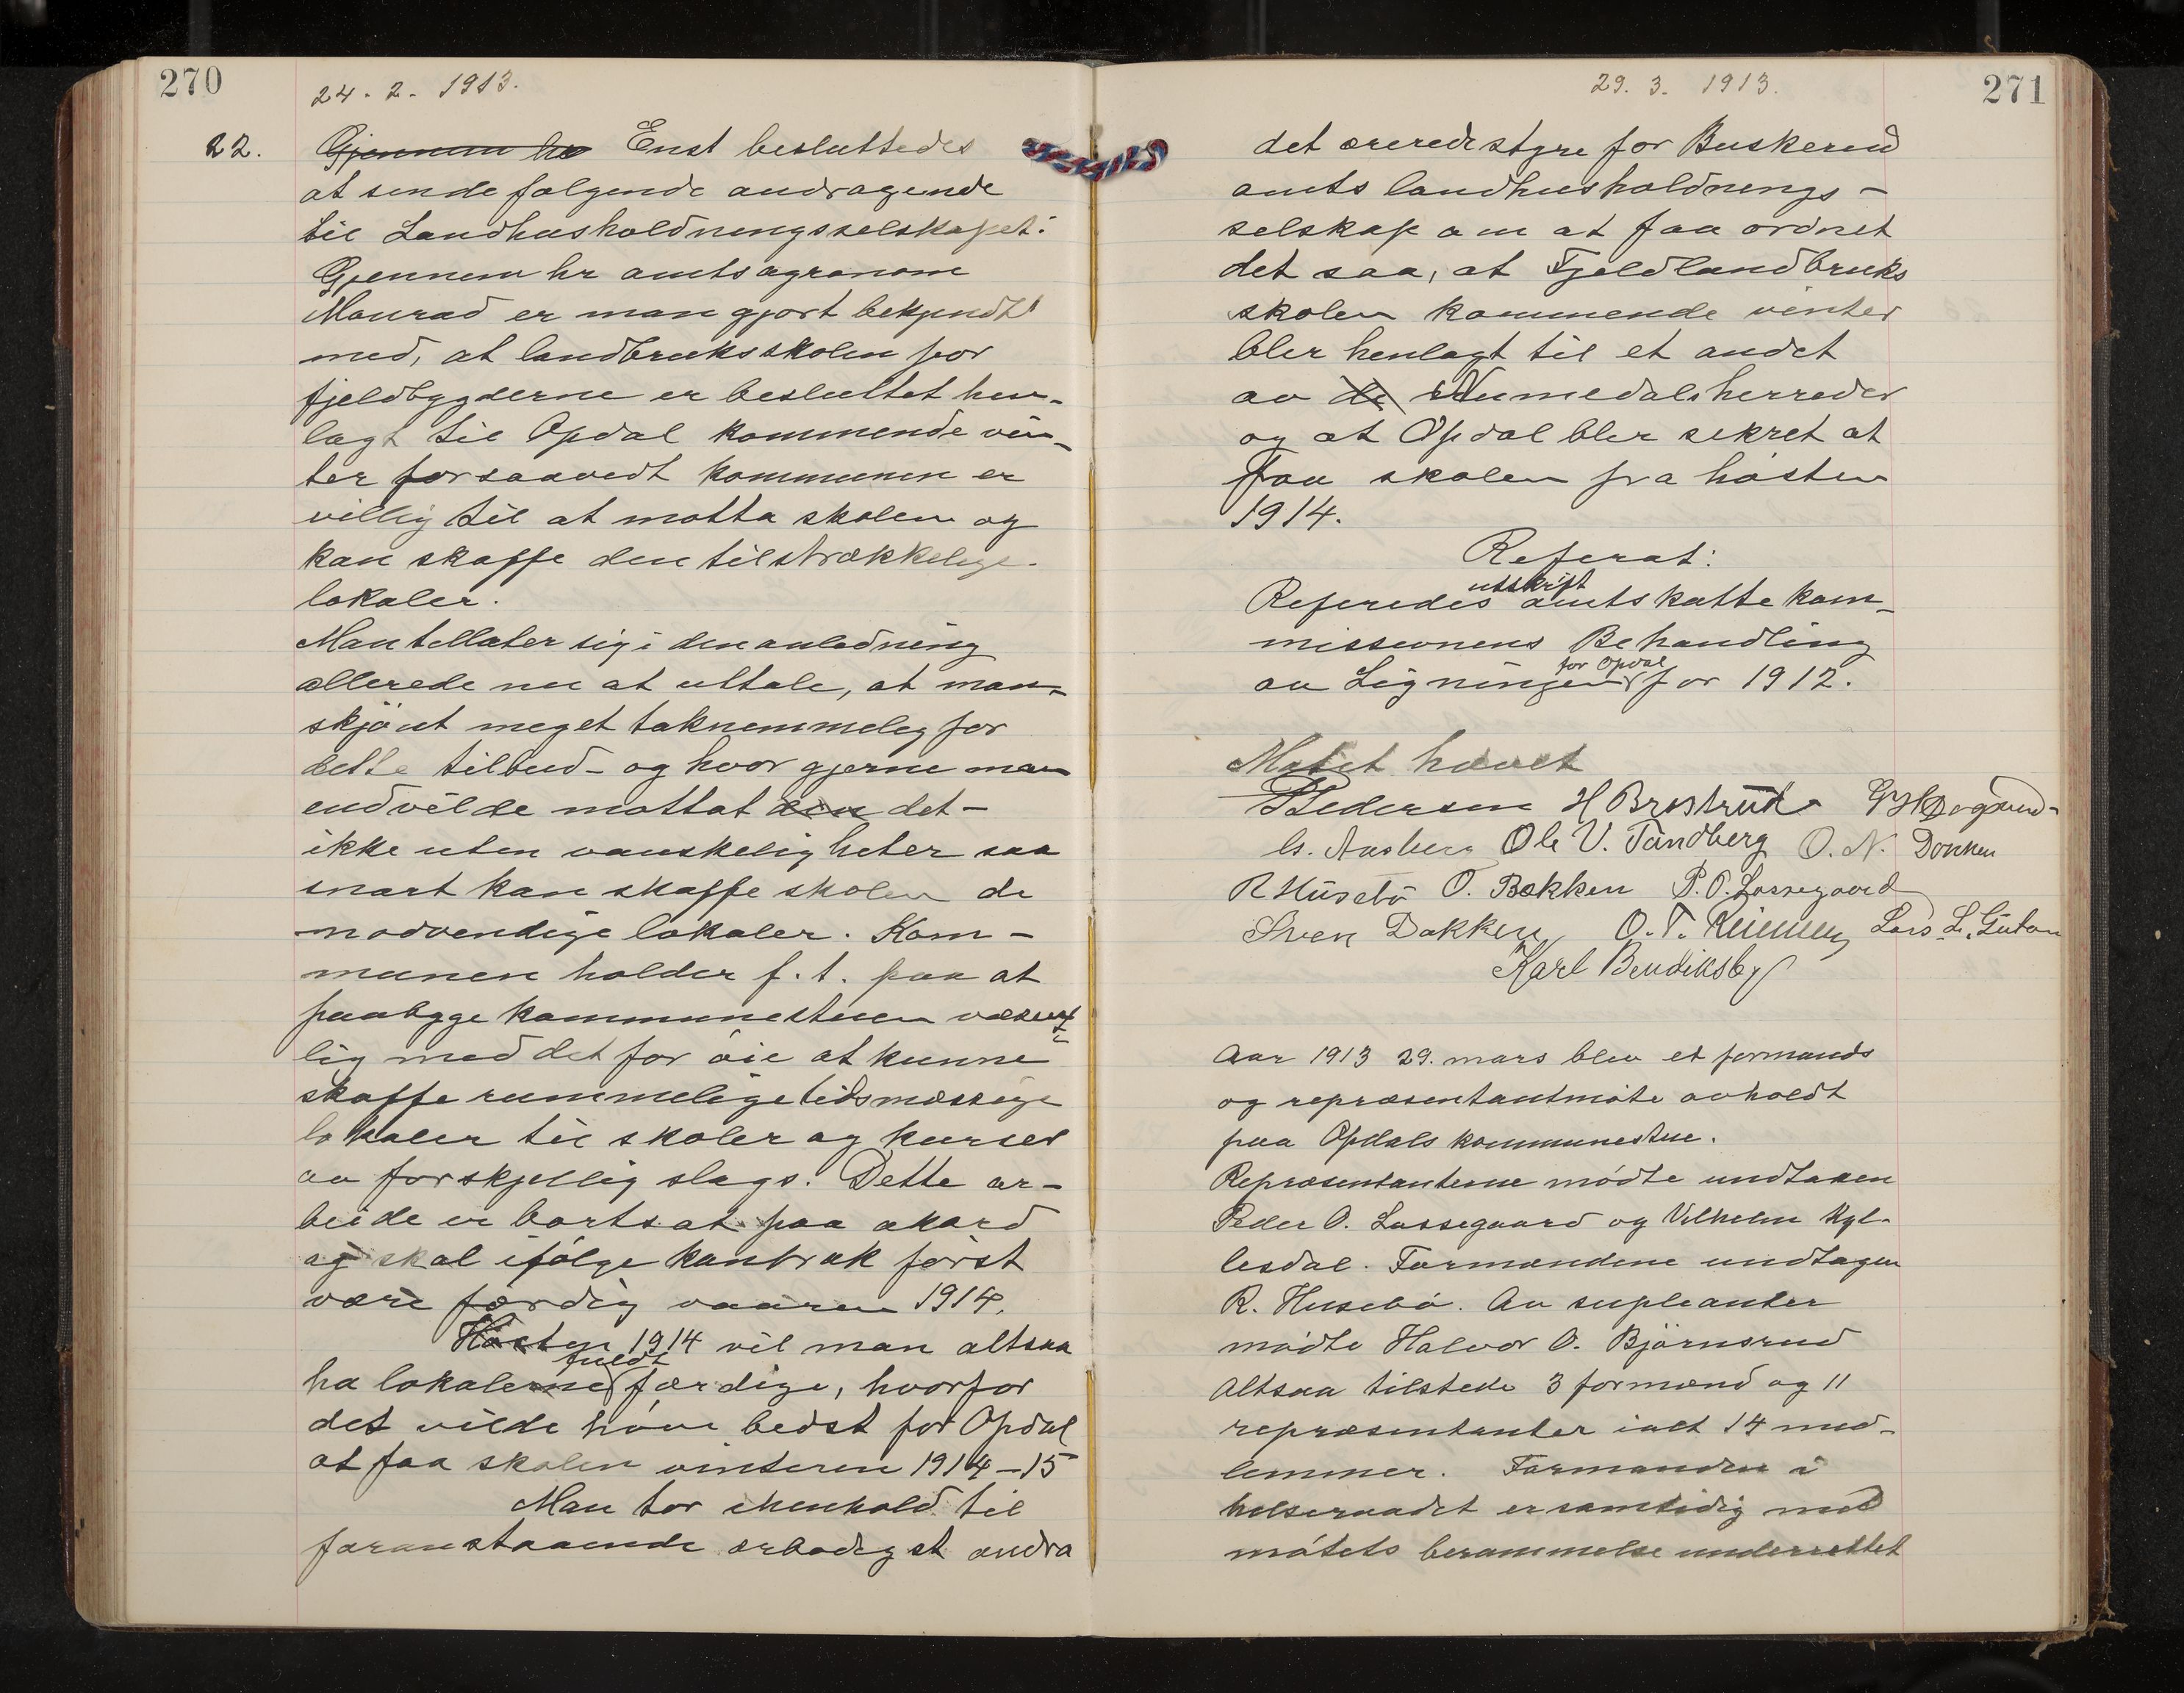 270
24. 2. 1913.
22. Gjennem hr Enst besluttedes
at sende følgende andragende
til Landhusholdningsselskapet:
Gjennem hr amtsagronom
Monrad er man gjort bekjendt
med, at landbruksskolen for
fjeldbygderne er besluttet hen-
lagt til Opdal kommende vin-
ter forsaavidt kommunen er
villig til at motta skolen og
kan skaffe den tilstrækkelige
lokaler.
Man tillater sig i den anledning
allerede nu at uttale, at man-
skjønt meget taknemmelig for
dette tilbud - og hvor gjerne man
end vilde mottat den det -
ikke uten vanskeligheter saa
snart kan skaffe skolen de
nødvendige lokaler. Kom-
munen holder f. t. paa at
paabygge kommunestuen væsent-
lig med det for øie at kunne
skaffe rummelige tidsmæssige
lokaler til skoler og kurser
av forskjellig slags. Dette ar-
beide er bortsat paa akord
og skal ifølge kontrak først
være færdig vaaren 1914.
Høsten 1914 vil man altsaa
fuldt
ha lokalerne færdige, hvorfor
det vilde høve bedst for Opdal
at faa skolen vinteren 1914-15
Man tør ihenhold til
foranstaaende ærbødigst andra
271
29. 3. 1913.
det ærerede styre for Buskerud
amts landhusholdnings-
selskap om at faa ordnet
det saa, at Fjeldlandbruks
skolen kommende vinter
blir henlagt til et andet
av de Numedalsherreder
og at Opdal blir sikret at
faa skolen fra høsten
1914.
Referat:
utskrift
Referedes amtskattekom-
missionens Behandling
for Opdal
av Ligningen for 1912.
Møtet hævet
P Pedersen H Brøstrud
Ole V. Tandberg O. N.
R Husebø O. Bakken P. O. Lassegaard
Sven Dokken O. T. Lars L.
Karl Bendiksby
Aar 1913 29. mars blev et formands
og repræsentantmøte avholdt
paa Opdals kommunestue.
Repræsentanterne mødte undtaken
Peder O. Lassegaard og Vilhelm Kyl-
lesdal. Formændene undtagen
R. Husebø. Av supleanter
mødte Halvor O. Bjørnsrud
Altsaa tilstede 3 formænd og 11
repræsentanter ialt 14 med-
lemmer. Formanden i
helseraadet er samtidig med
møtets berammelse underrettet